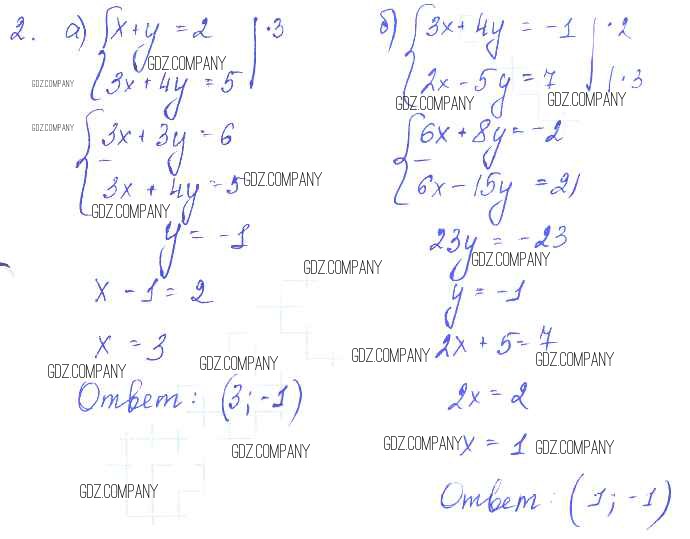 2. а) { x + y = 2 | · 3
GDZ.COMPANY
GDZ.COMPANY
3x + 4y = 5
GDZ.COMPANY
{ 3x + 3y = 6
−
3x + 4y = 5
GDZ.COMPANY
GDZ.COMPANY
y = -1
GDZ.COMPANY
x - 1 = 2
x = 3
GDZ.COMPANY
GDZ.COMPANY
Ответ: (3; -1)
GDZ.COMPANY
GDZ.COMPANY
б) { 3x + 4y = -1 | · 2
2x - 5y = 7 | · 3
GDZ.COMPANY
GDZ.COMPANY
{ 6x + 8y = -2
−
6x - 15y = 21
23y = -23
GDZ.COMPANY
y = -1
2x + 5 = 7
GDZ.COMPANY
GDZ.COMPANY
2x = 2
x = 1
GDZ.COMPANY
GDZ.COMPANY
Ответ: (1; -1)